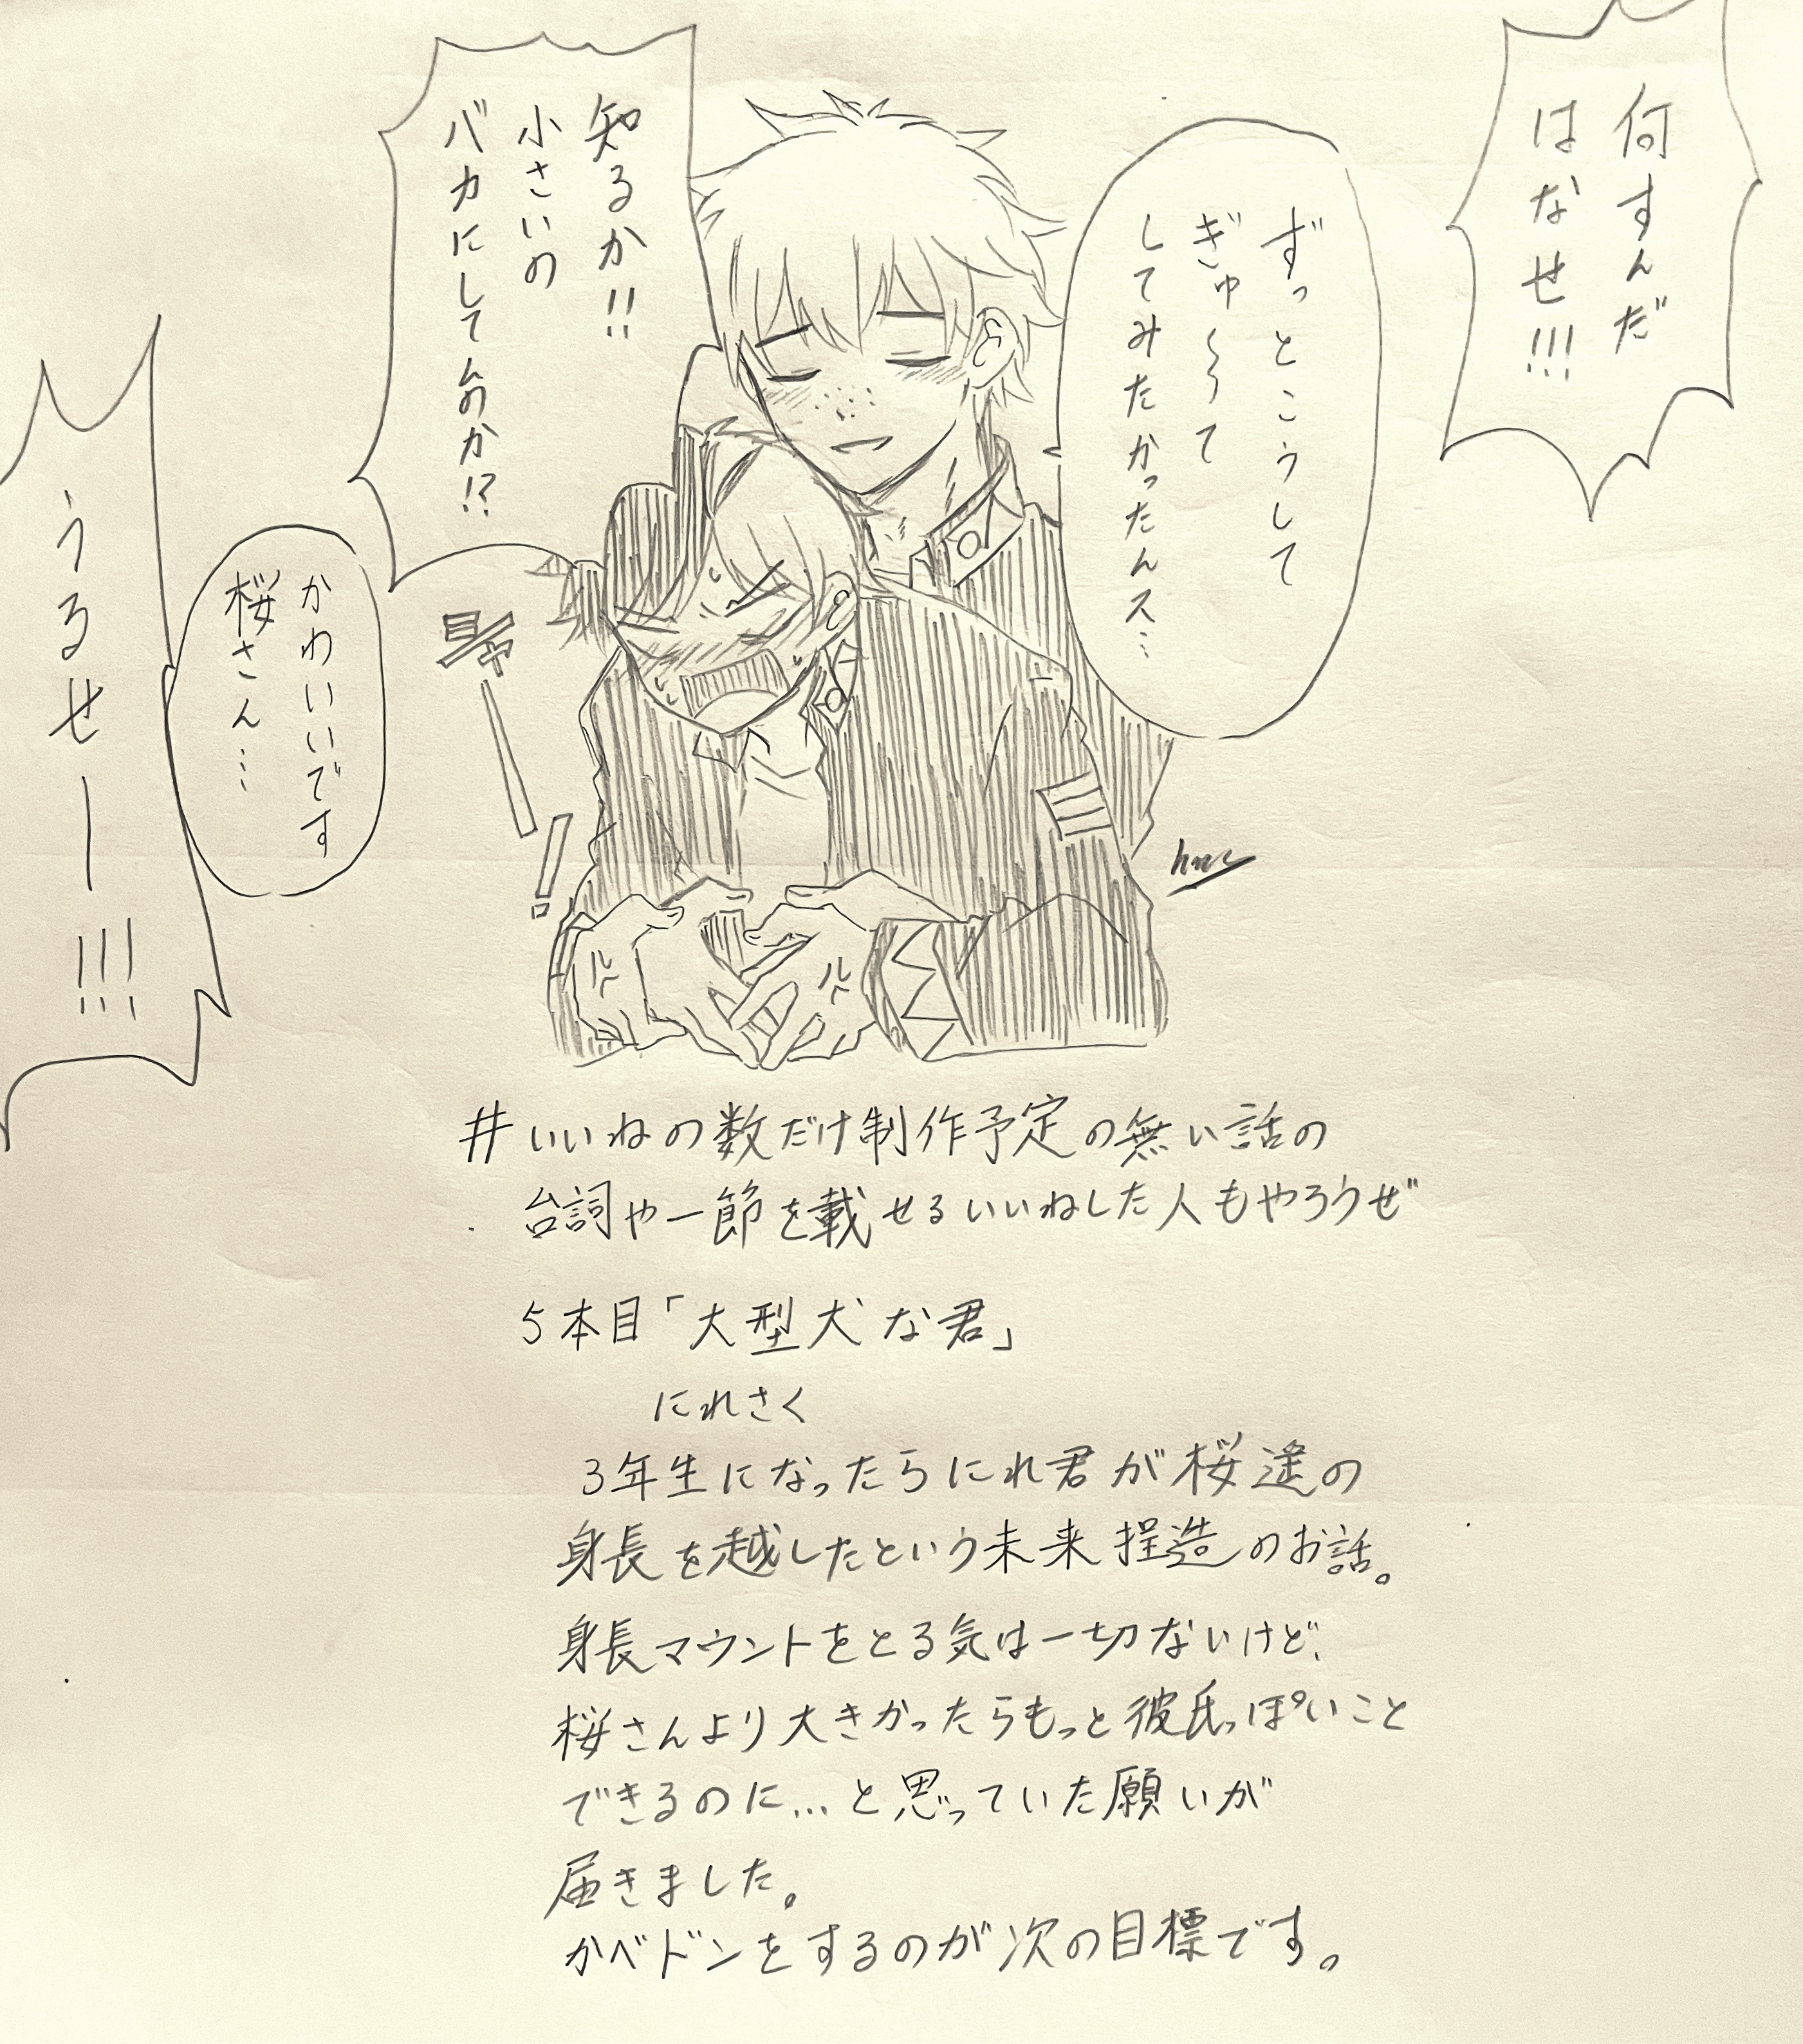 何すんだ
はなせ!!!
ずっとこうして
ぎゅ〜〜て
してみたかったんス…
知るか!!
小さいの
バカにしてんのか!?
かわいいです
桜さん…
うるせー!!!
#いいねの数だけ制作予定の無い話の
台詞や一節を載せるいいねした人もやろうぜ
5本目「大型犬な君」
にれさく
3年生になったらにれ君が桜遥の
身長を越したという未来捏造のお話。
身長マウントをとる気は一切ないけど、
桜さんより大きかったらもっと彼氏っぽいこと
できるのに…と思っていた願いが
届きました。
かべドンをするのが次の目標です。